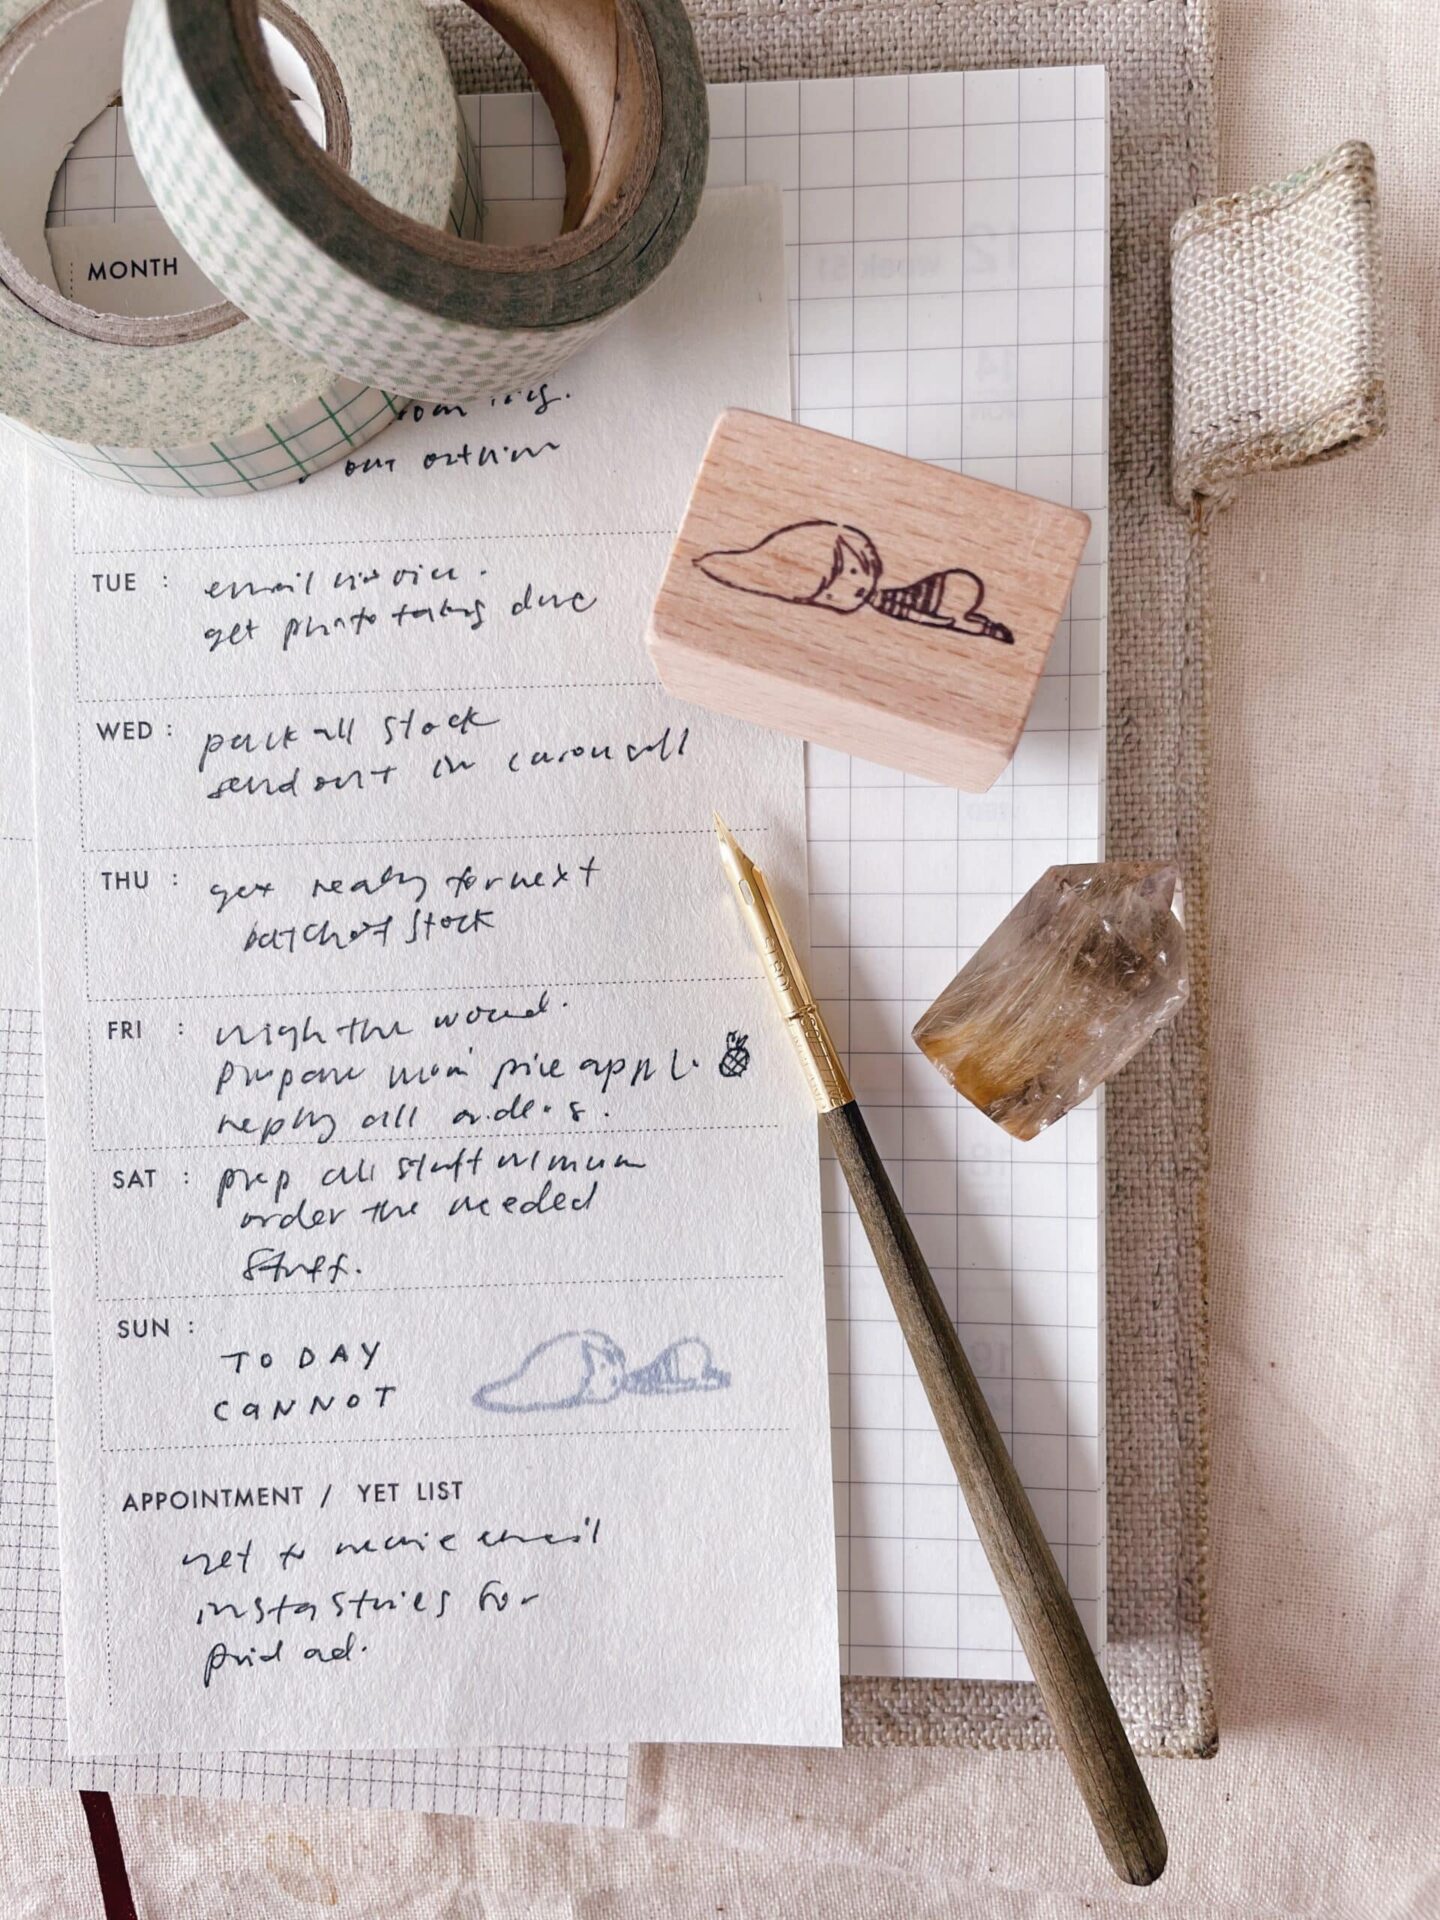 MONTH
out
TUE : email invoice.
get photo taking done
WED : pack all stock
send out in carousell
THU : get ready for next
batch of stock
FRI : weigh the wood.
prepare mom pineapple.
reply all orders.
SAT : prep all stuff
order the needed
stuff.
SUN :
TODAY
CANNOT
APPOINTMENT / YET LIST
yet to email
insta stories for
paid ad.